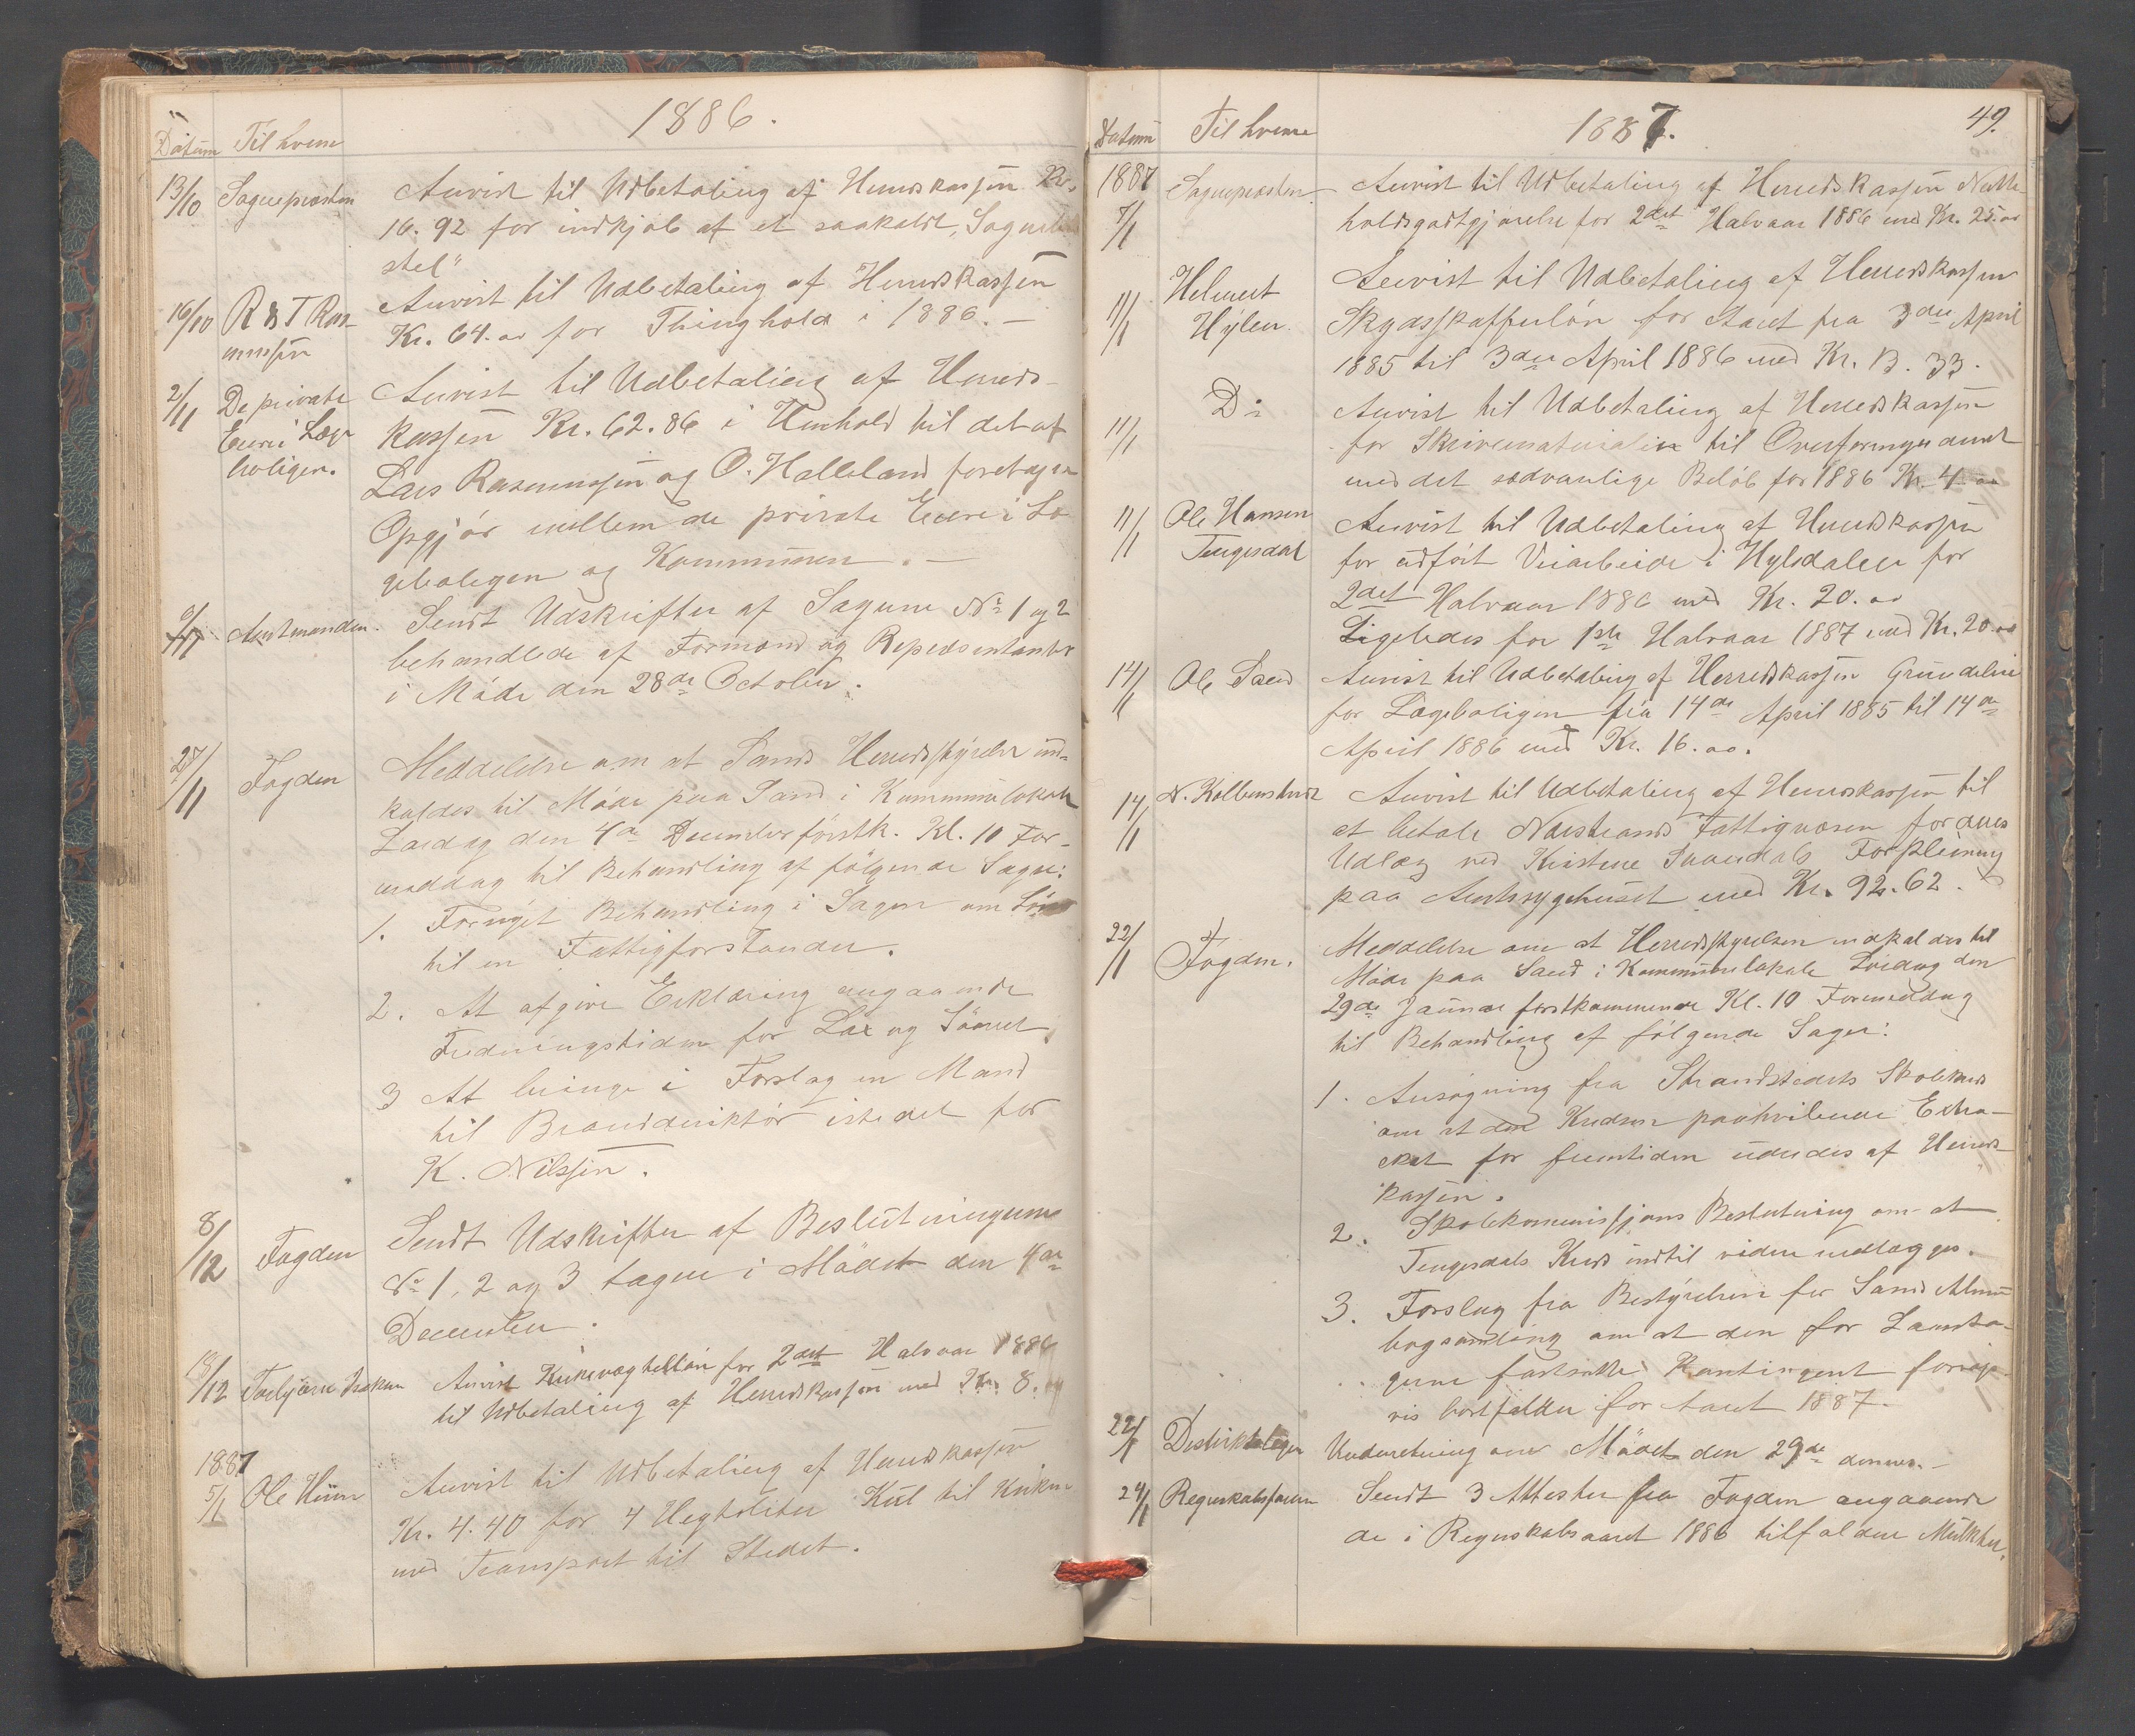 1886.
Datum Til hvem
13/10 Sognepræsten Anvist til Udbetaling af Herredskassen Kr.
16.92 for indkjøb af et saakaldt, "Sogne
stel"
16/10 R & T Ras- Anvist til Udbetaling af Herredskassen
mussen Kr. 64.00 for Thinghold i 1886. —
2/11 De private Anvist til Udbetaling af Herreds-
Eiere i Læge kassen Kr. 62.86 i Henhold til det af
boligen. Lars Rasmussen og O. Halleland foretagne
Opgjør mellem de private Eiere i Læ
geboligen og Kommunen. —
6/11 Amtmanden. Sendt Udskrifter af Sagerne No 1 og 2
behandlede af Formænd og Repræsentanter
i Møde den 28de October.
27/11 Fogden Meddelelse om at Sands Herredsstyrelse ind-
kaldes til Møde paa Sand i Kommunelokalet
Lørdag den 4de December førstk. Kl. 10 For-
middag til Behandling af følgende Sager:
1. Fornyet Behandling i Sagen om Løn
til en Fattigforstander.
2. At afgive Erklæring angaaende
Fredningstiden for Lax og Søørret
3 At bringe i Forslag en Mand
til Branddirektør istedet for
K. Nilssen.
8/12 Fogden Sendt Udskrifter af Beslutningerne
No 1, 2 og 3 tagne i Mødet den 4de
December.
18/12 Torbjørn Anvist Kirkevægterløn for 2det Halvaar 1886
til Udbetaling af Herredskassen med Kr. 8.
1887
5/1 Ole Anvist til Udbetaling af Herredskassen
Kr. 4.40 for 4 Hegtoliter Kul til Kirken
med Transport til Stedet.
49.
1887.
Datum Til hvem
1887 Sognepræsten. Anvist til Udbetaling af Herredskassen
7/1 holdsgodtgjørelse for 2det Halvaar 1886 med Kr. 25.00
11/1 Helmert Anvist til Udbetaling af Herredskassen
Hylen. Skydsskafferløn for Aaret fra 3die April
1885 til 3die April 1886 med Kr. 13.33.
11/1 Do Anvist til Udbetaling af Herredskassen
for Skrivematerialier til Overformynderiet
med det sædvanlige Beløb for 1886 Kr. 4.00
11/1 Ole Hansen Anvist til Udbetaling af Herredskassen
Tengesdal for udført Veiarbeide i Hylsdalen for
2det Halvaar 1886 med Kr. 20.00
Ligeledes for 1ste Halvaar 1887 med Kr. 20.00
14/1 Ole Sand Anvist til Udbetaling af Herredskassen Grundleie
for Lægeboligen fra 14de April 1885 til 14de
April 1886 med Kr. 16.00.
14/1 N. Kolbenstvedt Anvist til Udbetaling af Herredskassen til
at betale Nærstrands Fattigvæsen for deres
Udlæg ved Kristine Forpleining
paa Amtssygehuset med Kr. 92.62.
22/1 Fogden. Meddelelse om at Herredsstyrelsen indkaldes til
Møde paa Sand i Kommunelokale Lørdag den
29de Januar førstkommende Kl. 10 Formiddag
til Behandling af følgende Sager:
1. Ansøgning fra Strandstedets Skolekreds
om at den Kredsen paahvilende Extra-
skat for fremtiden udredes af Herreds-
kassen.
2. Skolekommissjons Beslutning om at
Tengesdals Kreds indtil videre nedlægges.
3. Forslag fra Bestyrelsen for Sands Almue
bogsamling om at den for Laanta-
gerne fastsatte Kontingent forsøgs-
vis bortfalder for Aaret 1887.
22/1 Distriktslægen Underretning om Mødet den 29de dennes. —
24/1 Sendt 3 Attester fra Fogden angaaende
de i Regnskabsaaret 1886 tilfaldne Mulkter.